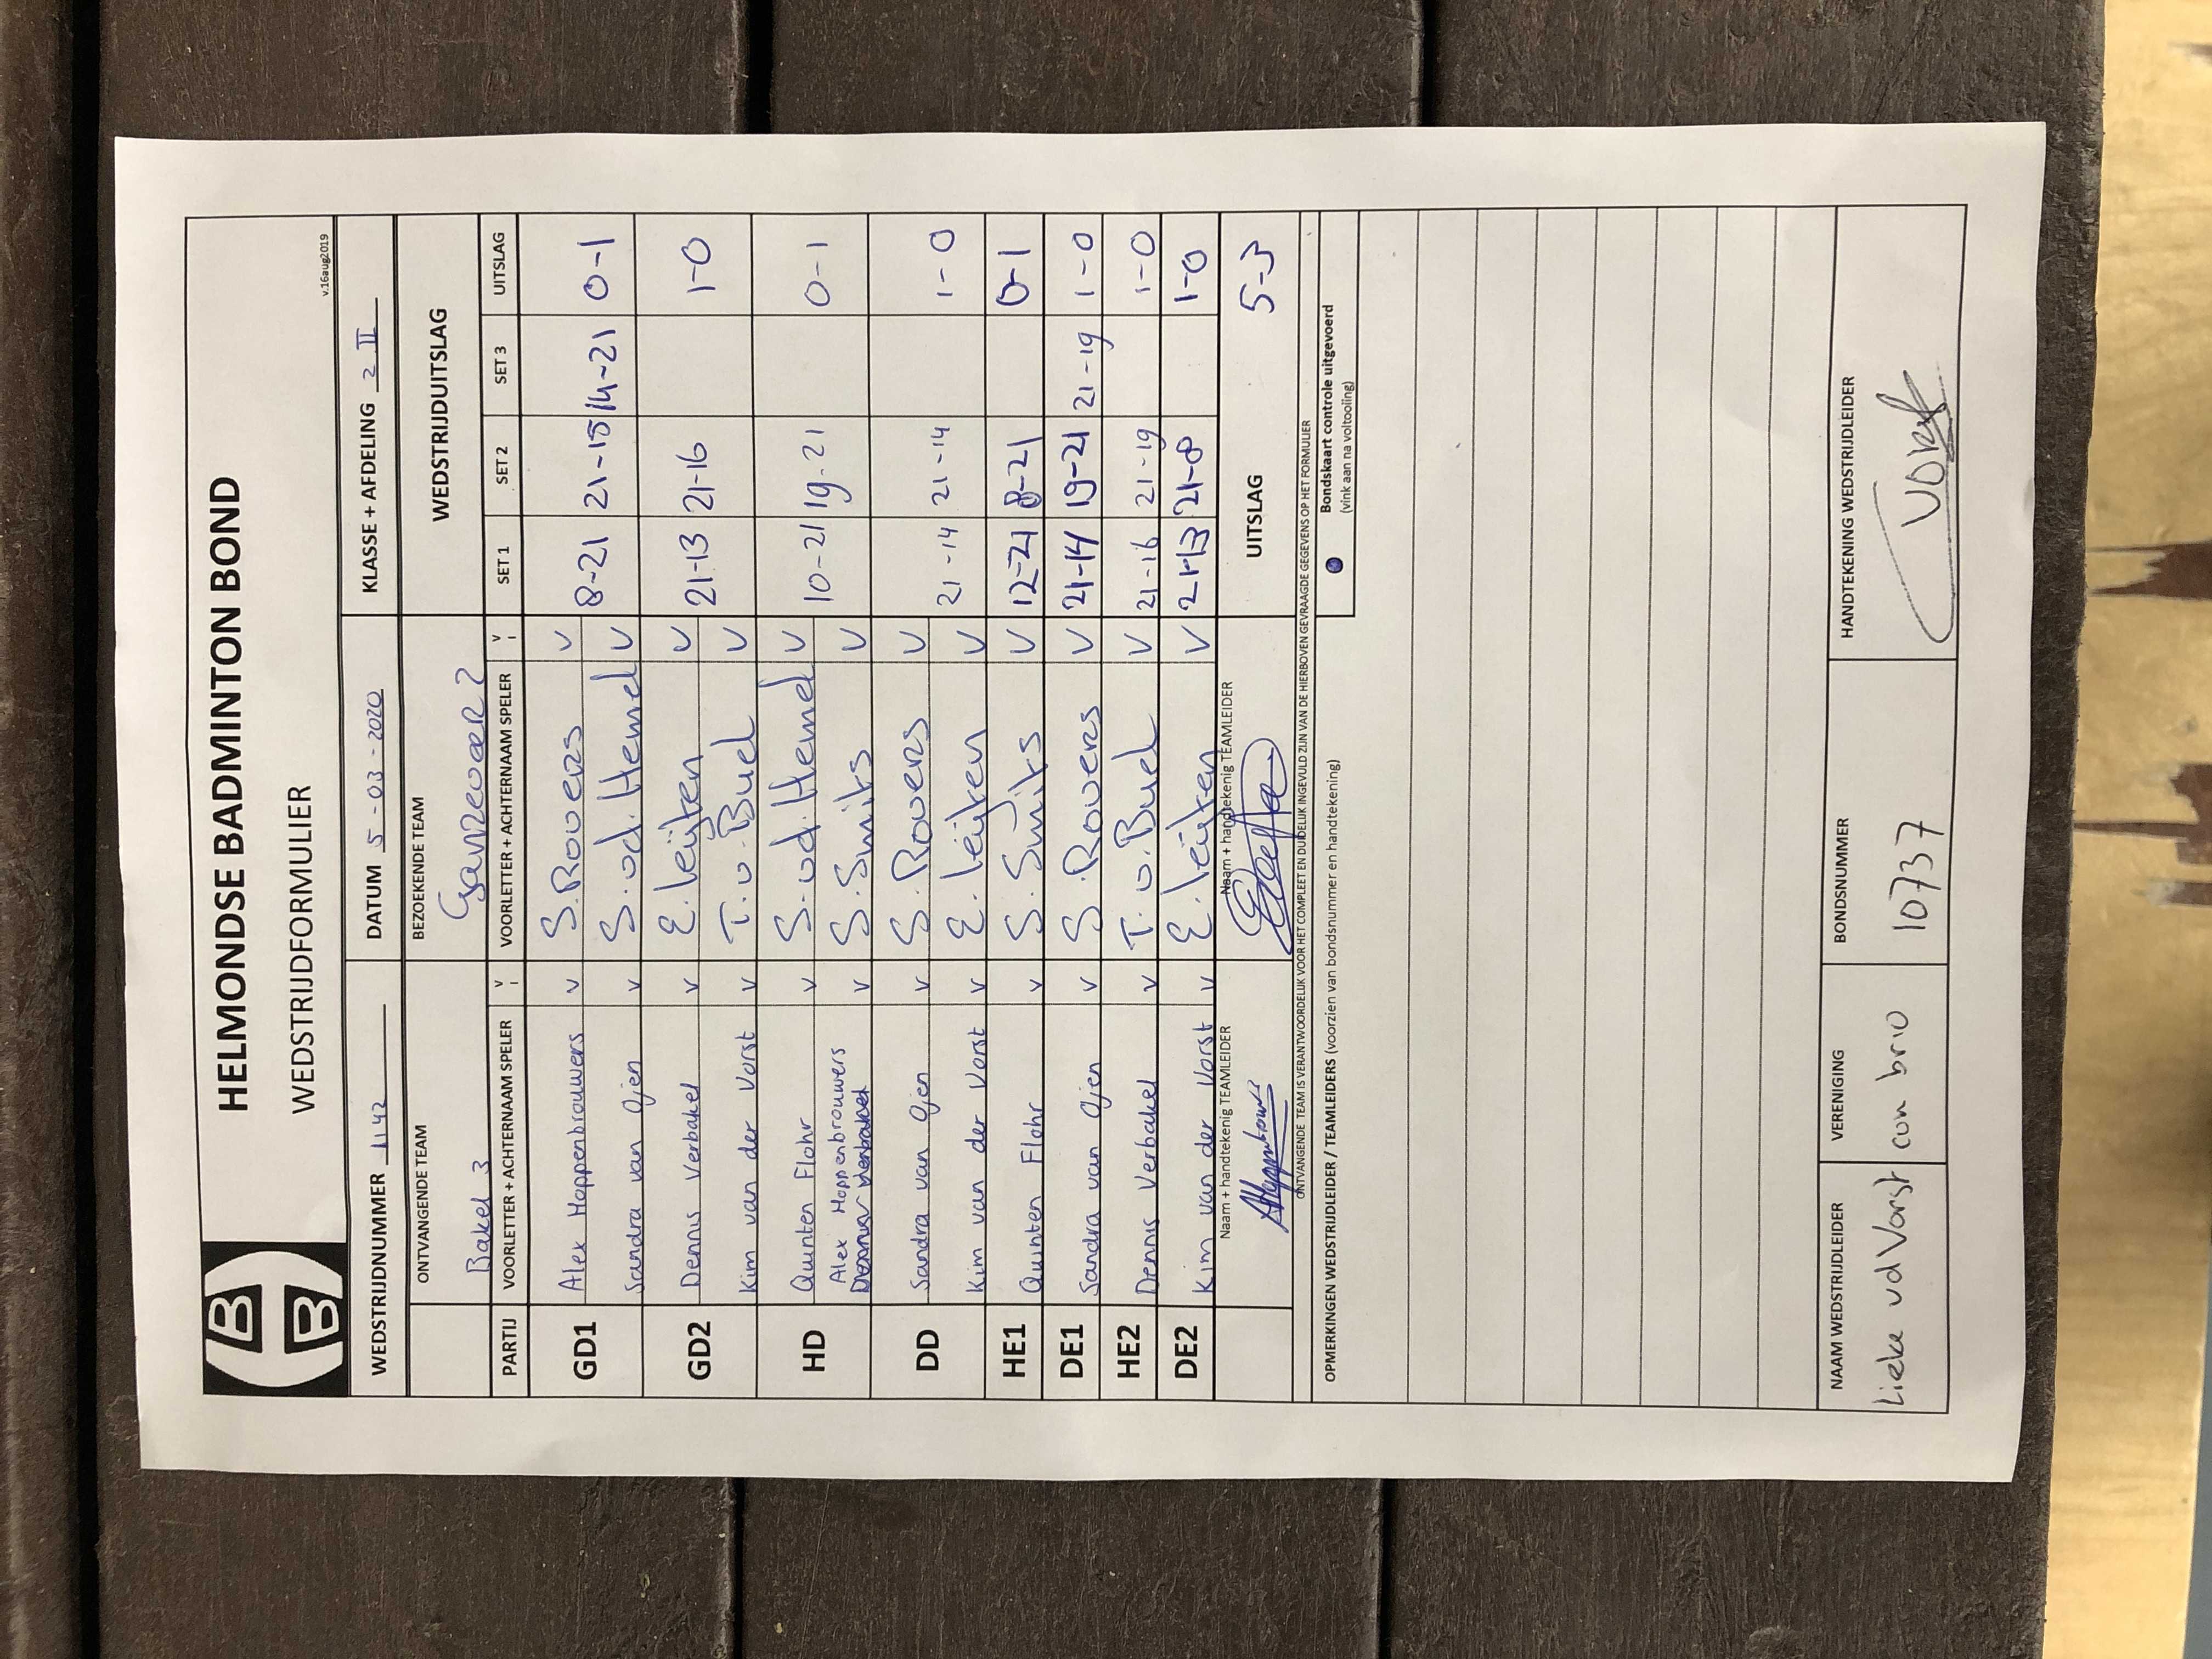 HELMONDSE BADMINTON BOND
WEDSTRIJDFORMULIER
v.16aug2019
WEDSTRIJDNUMMER 1142 DATUM 5-03-2020 KLASSE + AFDELING 2 II
ONTVANGENDE TEAM BEZOEKENDE TEAM WEDSTRIJDUITSLAG
Bakel 3
PARTIJ VOORLETTER + ACHTERNAAM SPELER V VOORLETTER + ACHTERNAAM SPELER V SET 1 SET 2 SET 3 UITSLAG
GD1 Alex Hoppenbrouwers v S. Rovers v 8-21 21-15 14-21 0-1
Sandra van Ojen v S. vd. Hemel v
GD2 Dennis Verbakel v E. Leijten v 21-13 21-16 1-0
Kim van der Vorst v T. v. Buel v
HD Quinten Flohr v S. vd. Hemel v 10-21 19-21 0-1
Alex Hoppenbrouwers v S. Smits v
Dennis Verbakel
DD Sandra van Ojen v S. Rovers v 21-14 21-14 1-0
Kim van der Vorst v E. Leijten v
HE1 Quinten Flohr v S. Smits v 12-21 8-21 0-1
DE1 Sandra van Ojen v S. Rovers v 21-14 19-21 21-19 1-0
HE2 Dennis Verbakel v T. v. Buel v 21-16 21-19 1-0
DE2 Kim van der Vorst v E. Leijten v 21-13 21-8 1-0
Naam + handtekenig TEAMLEIDER Naam + handtekenig TEAMLEIDER UITSLAG 5-3
ONTVANGENDE TEAM IS VERANTWOORDELIJK VOOR HET COMPLEET EN DUIDELIJK INGEVULD ZIJN VAN DE HIERBOVEN GEVRAAGDE GEGEVENS OP HET FORMULIER
OPMERKINGEN WEDSTRIJDLEIDER / TEAMLEIDERS (voorzien van bondsnummer en handtekening)
Bondskaart controle uitgevoerd
(vink aan na voltooling)
NAAM WEDSTRIJDLEIDER VERENIGING BONDSNUMMER HANDTEKENING WEDSTRIJDLEIDER
Lieke vd Vorst con brio 10737 Vorst